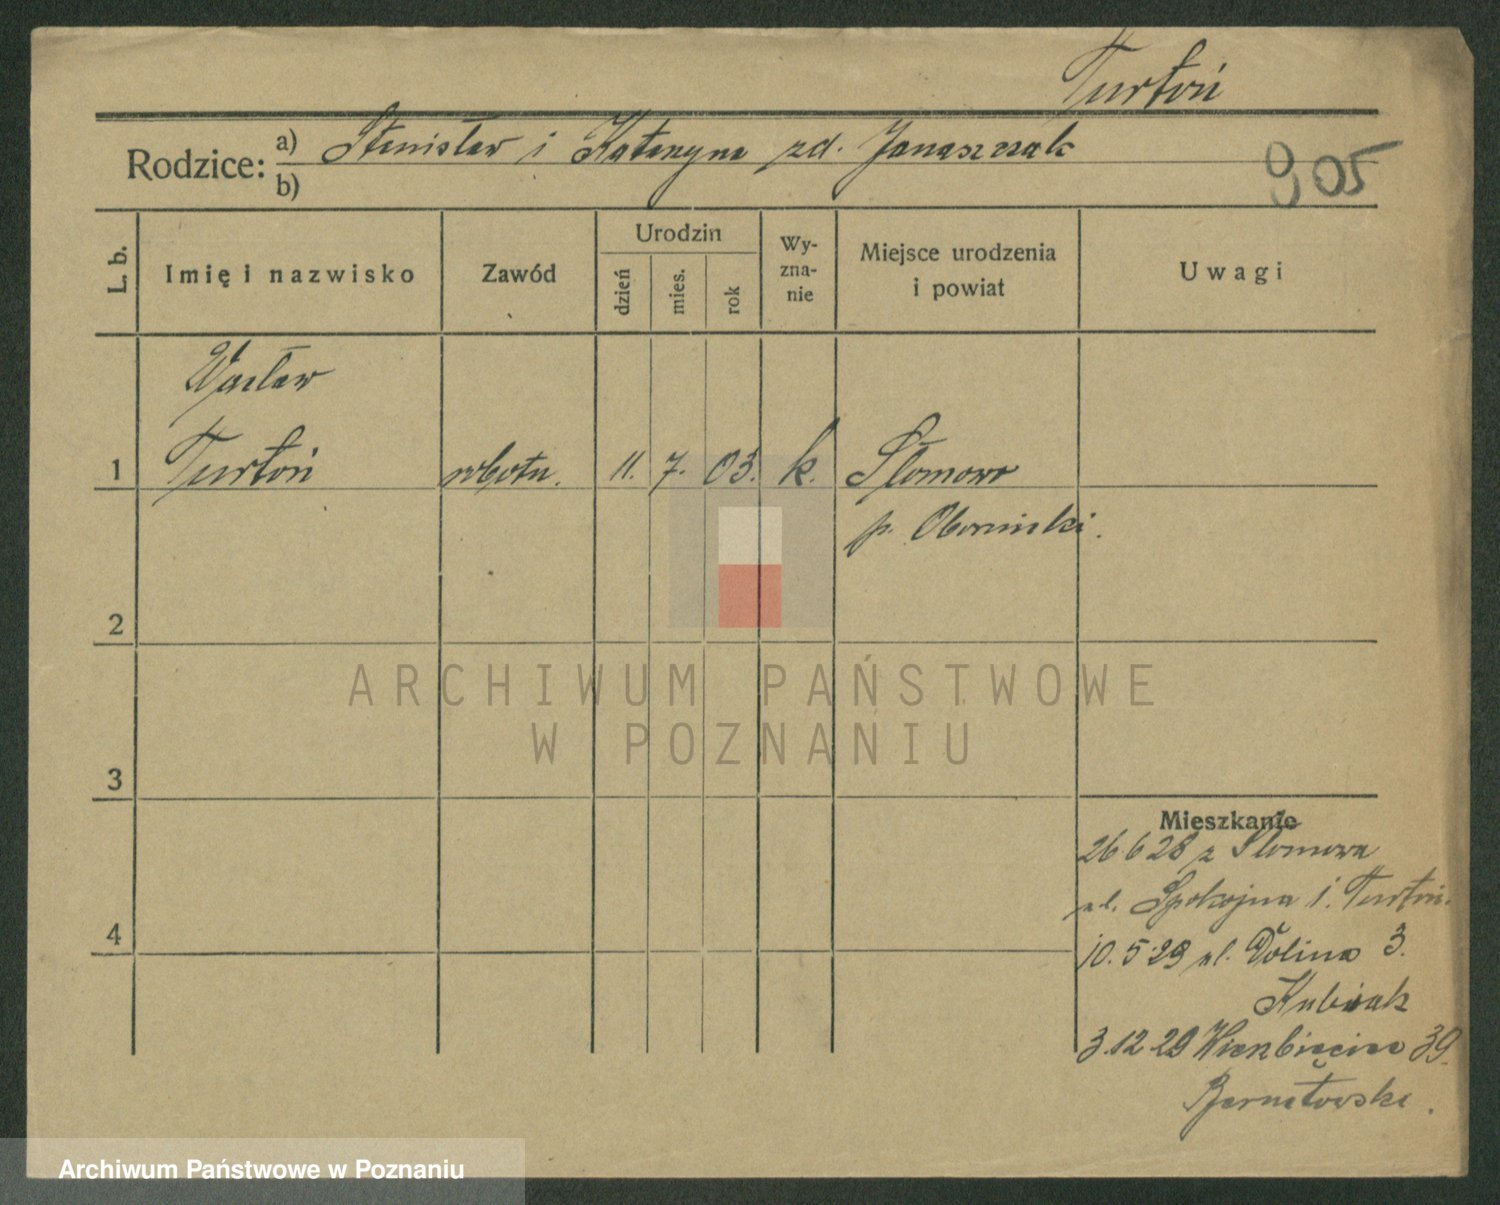 Turtoń
Rodzice:
a) Stanisław i Katarzyna zd. Janaszczak
b)
905
L. b.
Imię i nazwisko
Zawód
Urodzin
dzień
mies.
rok
Wy-
zna-
nie
Miejsce urodzenia
i powiat
Uwagi
Wacław
1 Turtoń robotn. 11. 7. 03. k. Słomowo
p. Obornicki.
2
ARCHIWUM PAŃSTWOWE
W POZNANIU
3
Mieszkanie
26 6 28 z Słomowa
ul. Spokojna 1. Turtoń.
4
10. 5 29 ul. Dolina 3.
Kubiak
3.12.29 Wierzbięcice 39.
Archiwum Państwowe w Poznaniu